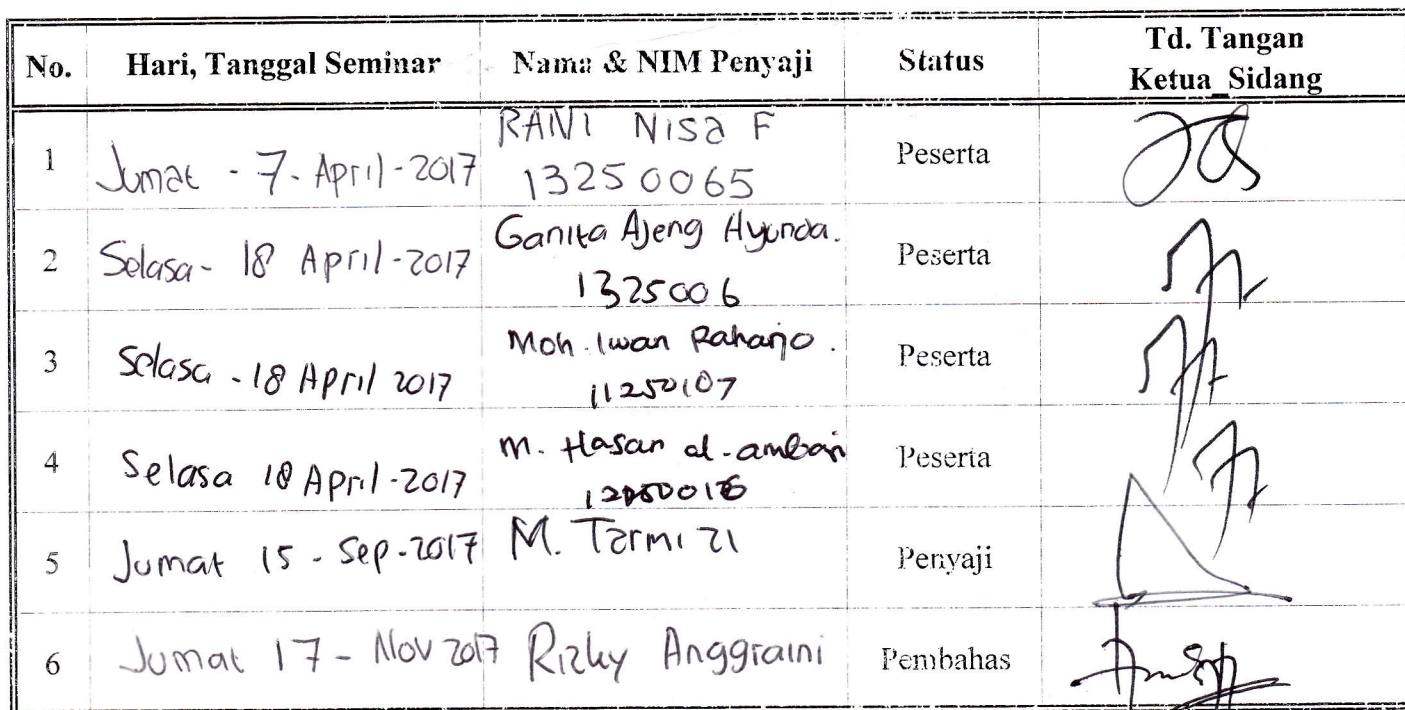 No. Hari, Tanggal Seminar Nama & NIM Penyaji Status Td. Tangan
Ketua_Sidang
1 Jumat - 7 - April - 2017 RANI Nisa F Peserta
13250065
2 Selasa - 18 April - 2017 Ganita Ajeng Ayunda. Peserta
1325006
3 Selasa - 18 April 2017 Moh. Iwan Raharjo. Peserta
11250107
4 Selasa 18 April - 2017 M. Hasan al-ambari Peserta
5 Jumat 15 - Sep - 2017 M. Tarmizi Penyaji
6 Jumat 17 - Nov 2017 Rizky Anggraini Pembahas